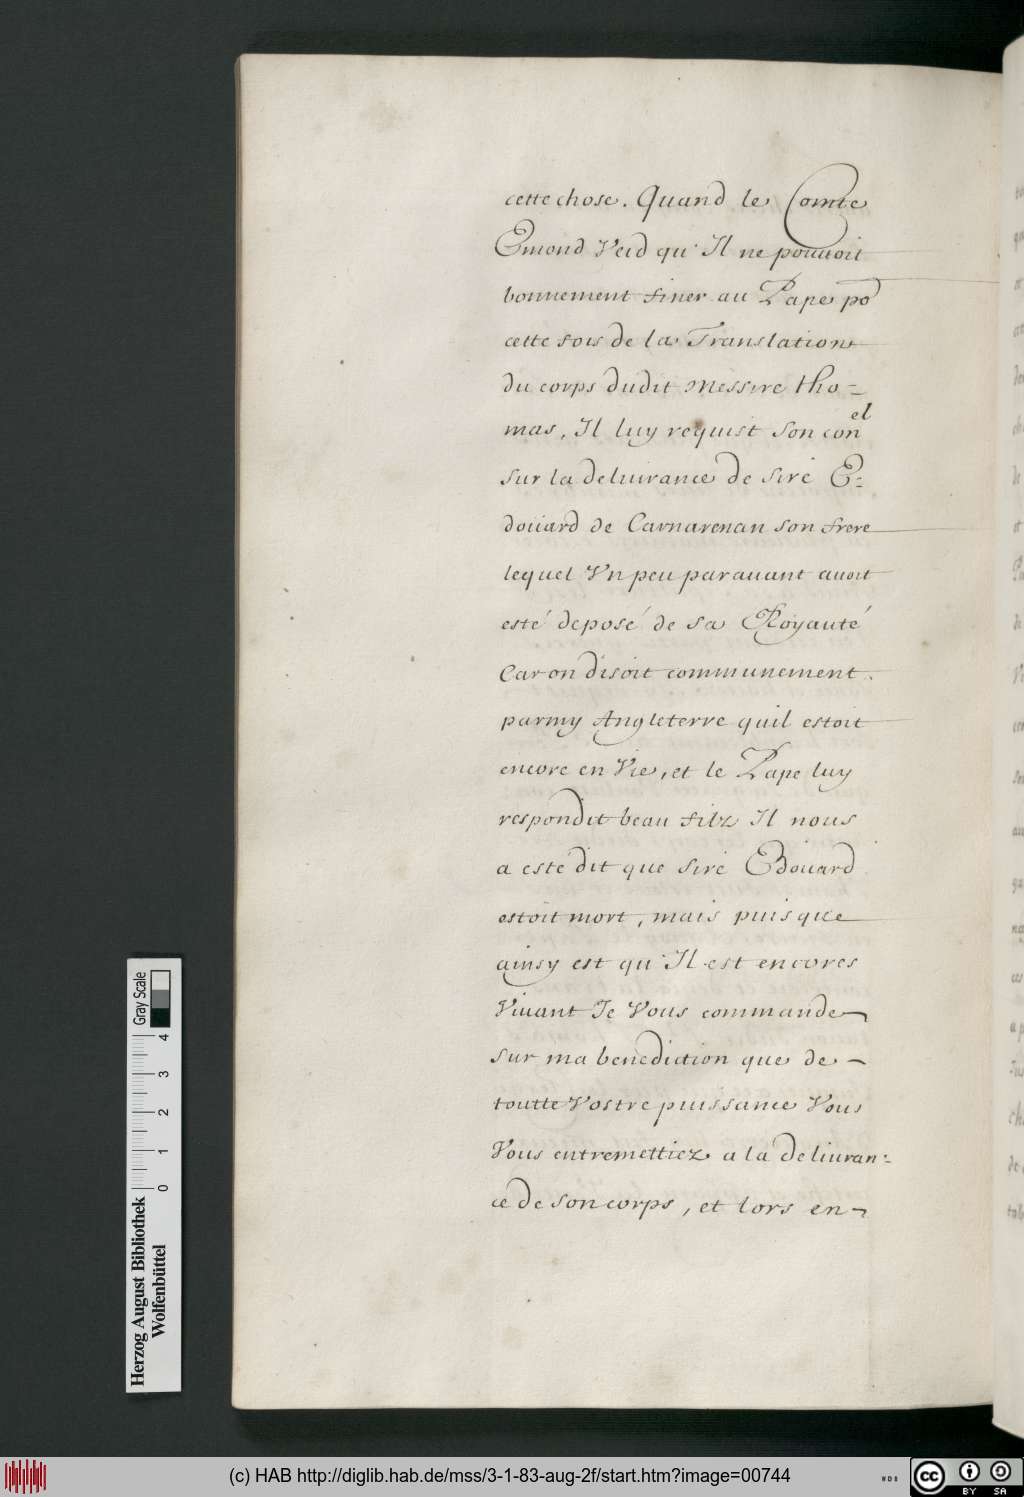 cette chose. Quand le Comte
Emond Veid qu'Il ne pouuoit
bonnement finer au Pape po
cette fois de la Translation
du corps dudit Messire tho-
mas, Il luy requist son con el
sur la deliurance de sire E-
doüard de Carnarenan son frere
lequel Vn peu parauant auoit
esté deposé de sa Royauté
Car on disoit communement.
parmy Angleterre quil estoit
encore en Vie, et le Pape luy
respondit beau filz Il nous
a este dit que sire Edouard
estoit mort, mais puis que
ainsy est qu'Il est encores
Viuant Je Vous commande
sur ma benediction que de
toutte Vostre puissance Vous
Vous entremettiez a la deliuran-
ce de son corps, et lors en-
Herzog August Bibliothek
Wolfenbüttel
0 1 2 3 4
Gray Scale
(c) HAB http://diglib.hab.de/mss/3-1-83-aug-2f/start.htm?image=00744
WDB
cc BY SA